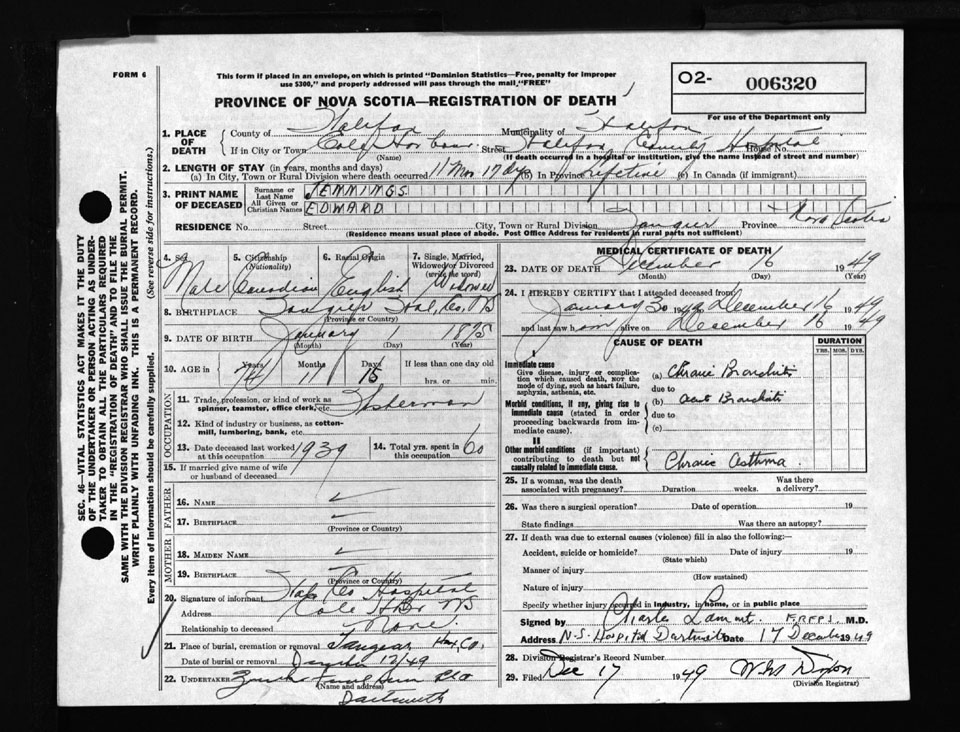 FORM 6
This form if placed in an envelope, on which is printed "Dominion Statistics—Free, penalty for improper
use $300," and properly addressed will pass through the mail "FREE"
O2- 006320
PROVINCE OF NOVA SCOTIA—REGISTRATION OF DEATH
For use of the Department only
1. PLACE OF DEATH
County of Halifax Municipality of Halifax
If in City or Town Cole Harbour Street Halifax County Hospital House No.
(Name) (If death occurred in a hospital or institution, give the name instead of street and number)
2. LENGTH OF STAY (in years, months and days)
(a) In City, Town or Rural Division where death occurred 11 Mos 17 dys (b) In Province lifetime (c) In Canada (if immigrant)
3. PRINT NAME OF DECEASED
Surname or Last Name JENNINGS
All Given or Christian Names EDWARD
RESIDENCE No. Street City, Town or Rural Division Tangier Province Nova Scotia
(Residence means usual place of abode. Post Office Address for residents in rural parts not sufficient)
4. Sex Male
5. Citizenship (Nationality) Canadian
6. Racial Origin English
7. Single, Married, Widowed or Divorced (write the word) Widower
8. BIRTHPLACE Tangier Hal. Co. NS
(Province or Country)
9. DATE OF BIRTH January 1875
(Month) (Day) (Year)
10. AGE in Years 74 Months 11 Days 15 If less than one day old
hrs. or min.
OCCUPATION
11. Trade, profession, or kind of work as spinner, teamster, office clerk, etc. Fisherman
12. Kind of industry or business, as cotton-mill, lumbering, bank, etc.
13. Date deceased last worked at this occupation 1939
14. Total yrs. spent in this occupation 60
15. If married give name of wife or husband of deceased
FATHER
16. NAME
17. BIRTHPLACE
(Province or Country)
MOTHER
18. MAIDEN NAME
19. BIRTHPLACE
(Province or Country)
20. Signature of informant Hal. Co Hospital
Address Cole Hbr NS
Relationship to deceased None.
21. Place of burial, cremation or removal Tangier Hax. Co.
Date of burial or removal /49
22. UNDERTAKER
(Name and address)
Dartmouth
MEDICAL CERTIFICATE OF DEATH
23. DATE OF DEATH December 16 1949
(Month) (Day) (Year)
24. I HEREBY CERTIFY that I attended deceased from
January 30 1949 to December 16 1949
and last saw him alive on December 16 1949
CAUSE OF DEATH
DURATION
YRS. MOS. DYS.
I
Immediate cause
Give disease, injury or complication which caused death, NOT the mode of dying, such as heart failure, asphyxia, asthenia, etc.
(a) Chronic Bronchitis
due to
Morbid conditions, if any, giving rise to immediate cause (stated in order proceeding backwards from immediate cause).
(b) acute Bronchitis
due to
(c)
II
Other morbid conditions (if important) contributing to death but not causally related to immediate cause.
Chronic Asthma.
25. If a woman, was the death associated with pregnancy? Duration weeks. Was there a delivery?
26. Was there a surgical operation? Date of operation 19
State findings Was there an autopsy?
27. If death was due to external causes (violence) fill in also the following:—
Accident, suicide or homicide? Date of injury 19
(State which)
Manner of injury
(How sustained)
Nature of injury
Specify whether injury occurred in Industry, in home, or in public place
Signed by Charles M.D.
Address N.S. Hospital Dartmouth Date 17 December 1949
28. Division Registrar's Record Number
29. Filed Dec 17 1949
(Division Registrar)
SEC. 46—VITAL STATISTICS ACT MAKES IT THE DUTY
OF THE UNDERTAKER OR PERSON ACTING AS UNDER-
TAKER TO OBTAIN ALL THE PARTICULARS REQUIRED
IN THE "REGISTRATION OF DEATH" AND TO FILE THE
SAME WITH THE DIVISION REGISTRAR WHO SHALL ISSUE THE BURIAL PERMIT.
WRITE PLAINLY WITH UNFADING INK. THIS IS A PERMANENT RECORD.
Every item of information should be carefully supplied. (See reverse side for instructions.)